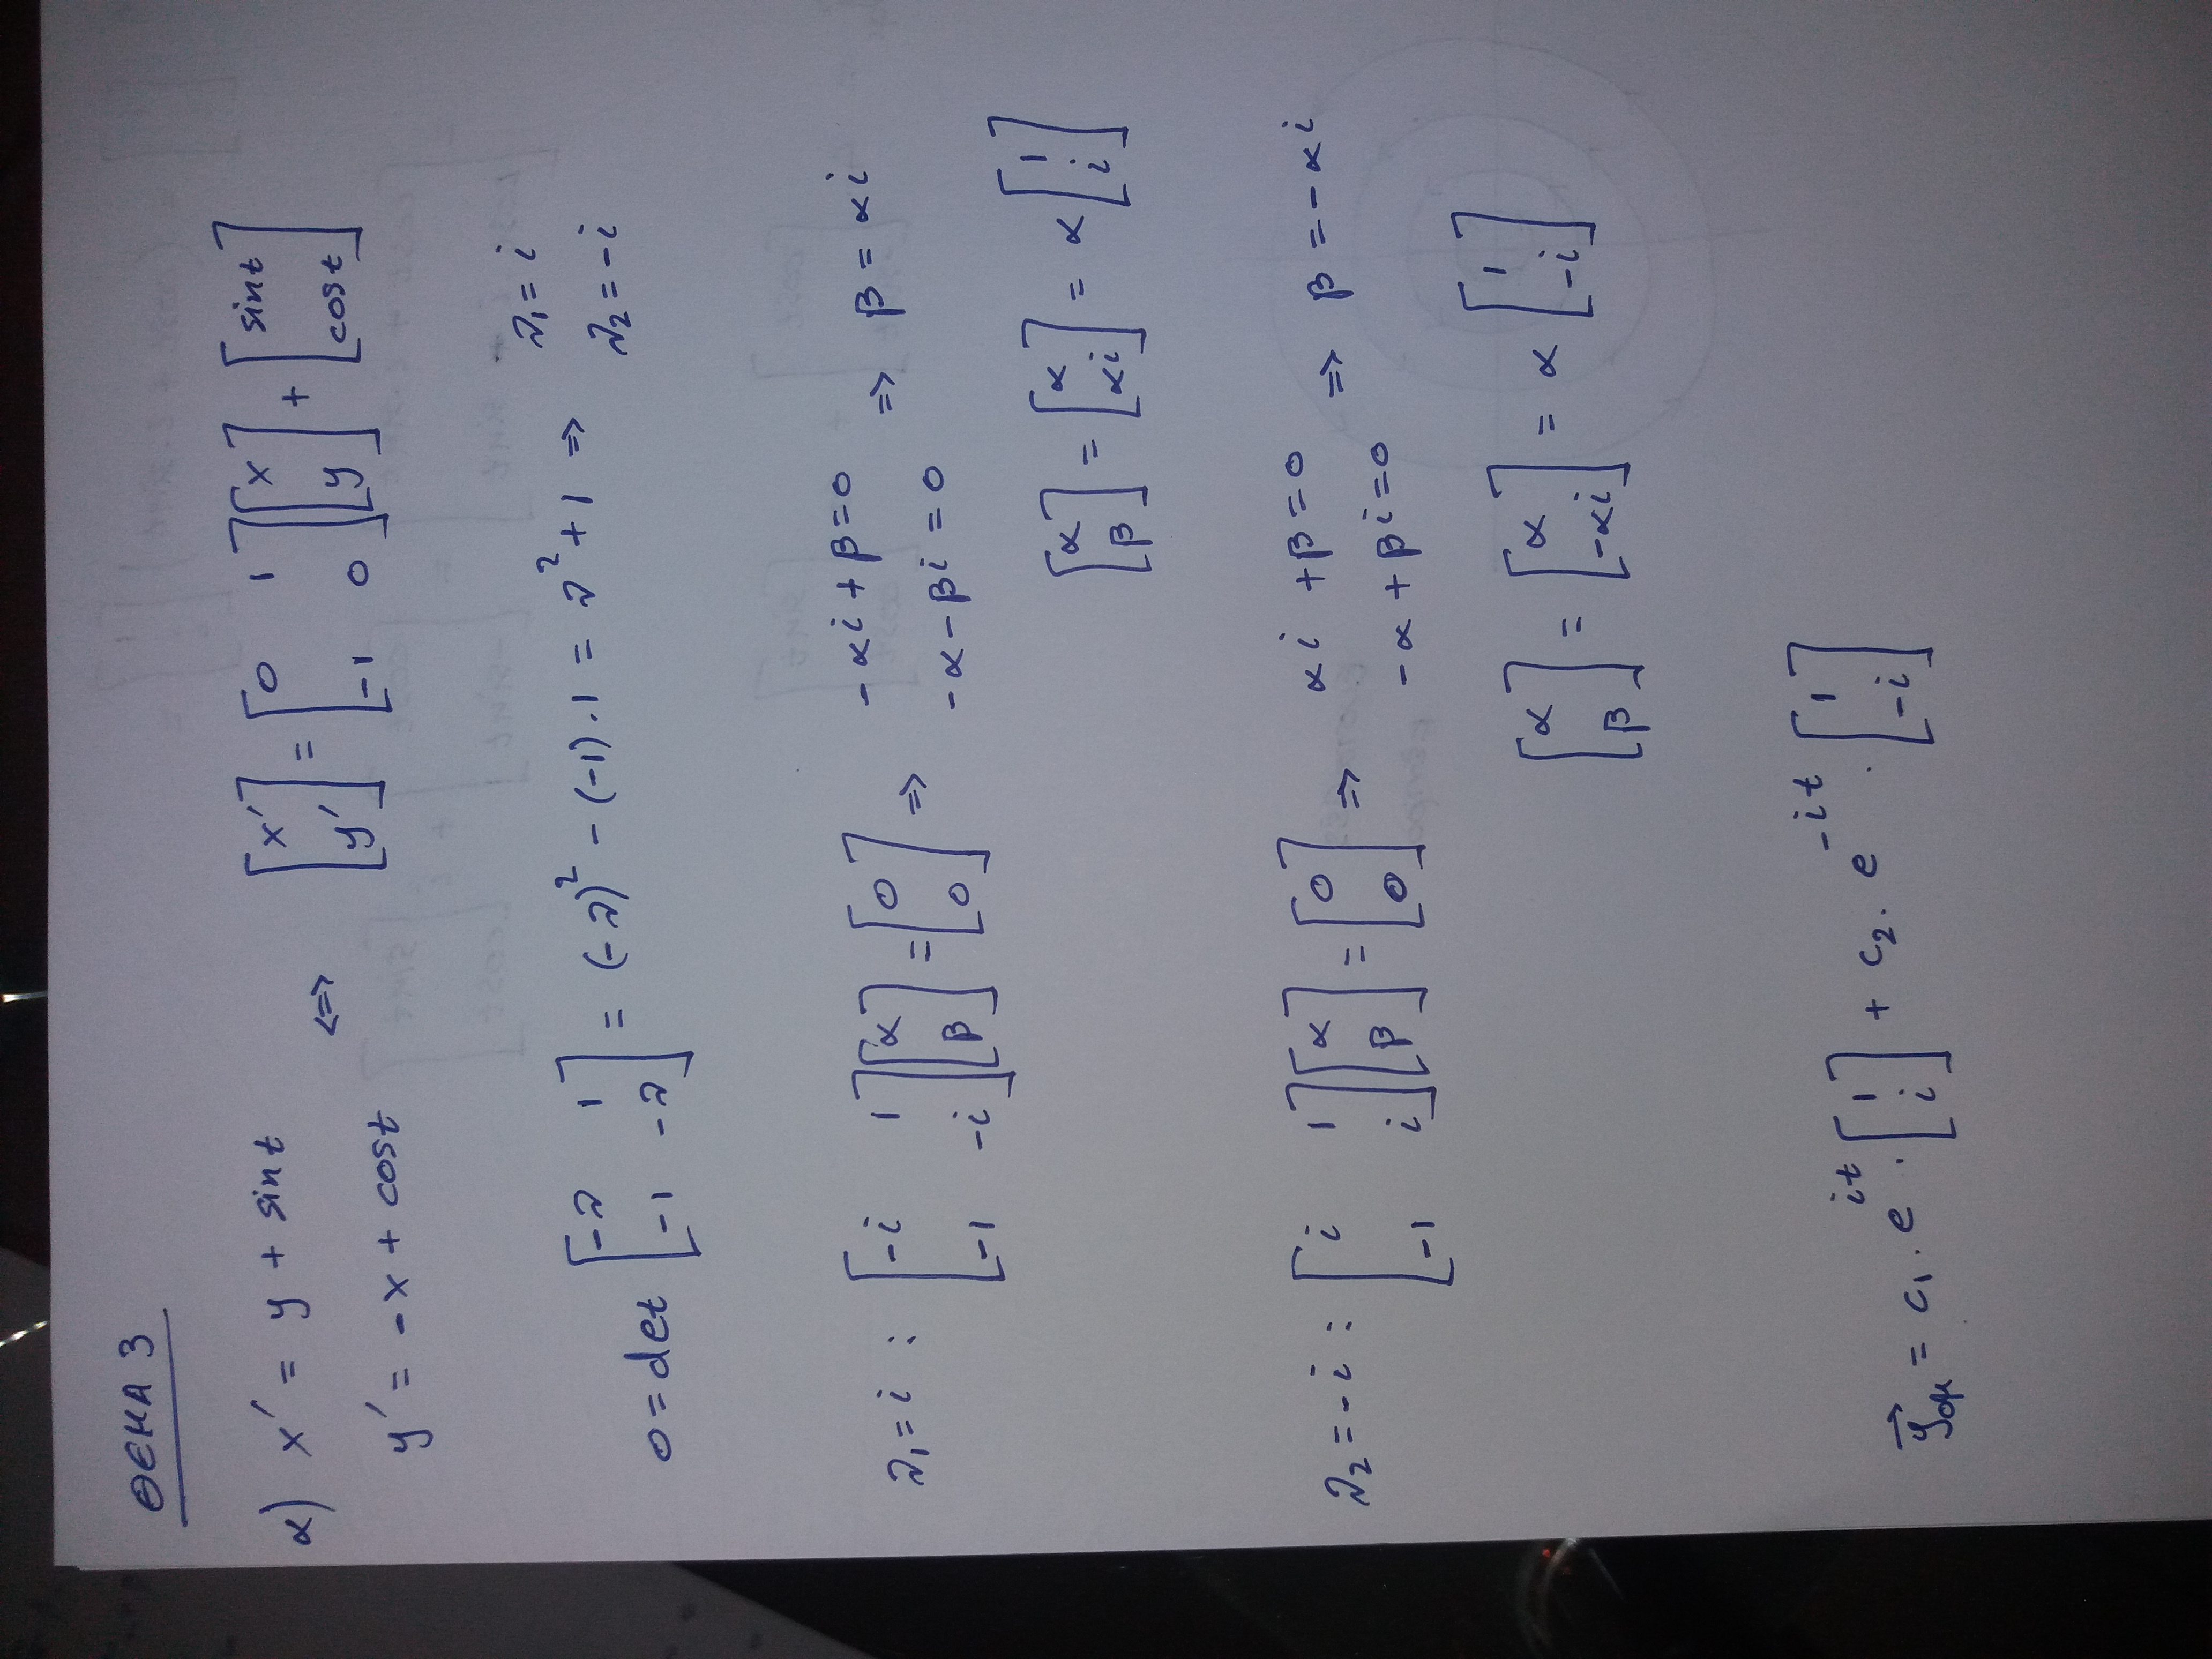 ΘΕΜΑ 3
α) x' = y + sint
y' = -x + cost
⇔ [x' ; y'] = [0 1 ; -1 0] [x ; y] + [sint ; cost]
0 = det [-λ 1 ; -1 -λ] = (-λ)² - (-1).1 = λ² + 1 ⇒ λ₁ = i
λ₂ = -i
λ₁ = i : [-i 1 ; -1 -i] [α ; β] = [0 ; 0] ⇒ -αi + β = 0
-α - βi = 0 ⇒ β = αi
[α ; β] = [α ; αi] = α [1 ; i]
λ₂ = -i : [i 1 ; -1 i] [α ; β] = [0 ; 0] ⇒ αi + β = 0
-α + βi = 0 ⇒ β = -αi
[α ; β] = [α ; -αi] = α [1 ; -i]
y⃗ομ = c₁ . e^{it} . [1 ; i] + c₂ . e^{-it} . [1 ; -i]